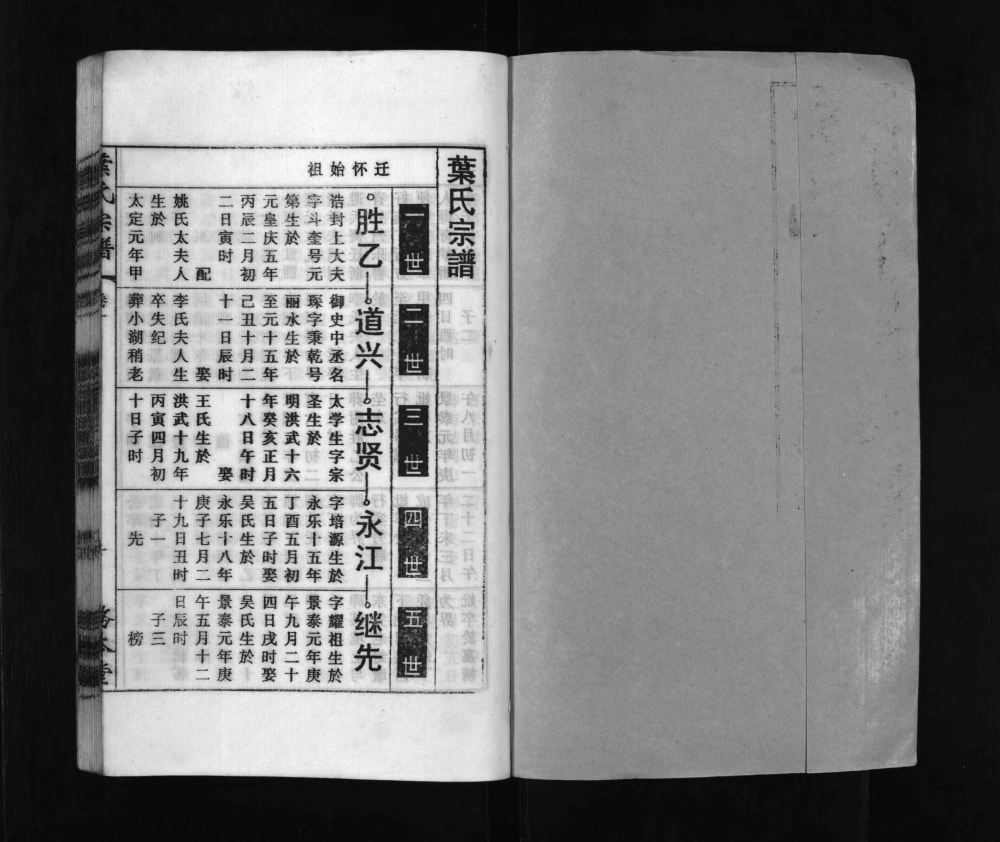 葉氏宗譜
迁怀始祖
一世
二世
三世
四世
五世
胜乙
道兴
志贤
永江
继先
浩封上大夫
字斗奎号元
第生於
元皇庆五年
丙辰二月初
二日寅时
配
姚氏太夫人
生於
太定元年甲
御史中丞名
琛字秉乾号
丽水生於
至元十五年
己丑十月二
十一日辰时
娶
李氏夫人生
卒失纪
葬小湖稍老
太学生字宗
圣生於
明洪武十六
年癸亥正月
十八日午时
娶
王氏生於
洪武十九年
丙寅四月初
十日子时
字培源生於
永乐十五年
丁酉五月初
五日子时娶
吴氏生於
永乐十八年
庚子七月二
十九日丑时
子一
先
字耀祖生於
景泰元年庚
午九月二十
四日戌时娶
吴氏生於
景泰元年庚
午五月十二
日辰时
子三
榜
葉氏宗譜
卷